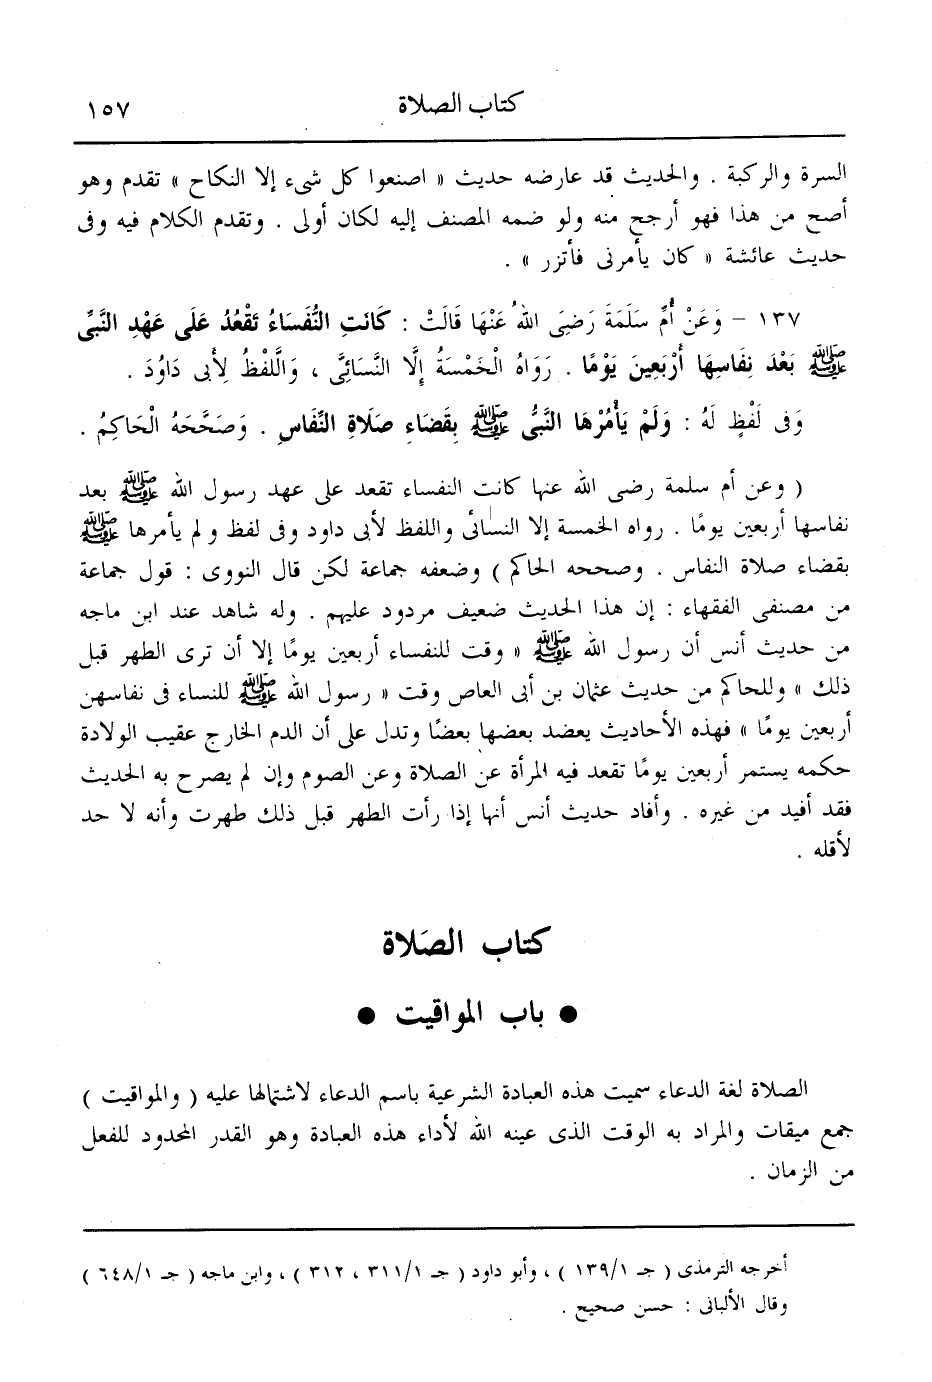 كتاب الصلاة ١٥٧
السرة والركبة . والحديث قد عارضه حديث « اصنعوا كل شىء إلا النكاح » تقدم وهو
أصح من هذا فهو أرجح منه ولو ضمه المصنف إليه لكان أولى . وتقدم الكلام فيه وفى
حديث عائشة « كان يأمرنى فأتزر » .
١٣٧ – وَعَنْ أُمِّ سَلَمَةَ رَضِىَ اللهُ عَنْهَا قَالَتْ : كَانَتِ النُّفَسَاءُ تَقْعُدُ عَلَى عَهْدِ النَّبِىِّ
ﷺ بَعْدَ نِفَاسِهَا أَرْبَعِينَ يَوْمًا . رَوَاهُ الْخَمْسَةُ إِلَّا النَّسَائِىَّ ، وَاللَّفْظُ لِأَبِى دَاوُدَ .
وَفِى لَفْظٍ لَهُ : وَلَمْ يَأْمُرْهَا النَّبِىُّ ﷺ بِقَضَاءِ صَلَاةِ النِّفَاسِ . وَصَحَّحَهُ الْحَاكِمُ .
( وعن أم سلمة رضى الله عنها كانت النفساء تقعد على عهد رسول الله ﷺ بعد
نفاسها أربعين يومًا . رواه الخمسة إلا النسائى واللفظ لأبى داود وفى لفظ ولم يأمرها ﷺ
بقضاء صلاة النفاس . وصححه الحاكم ) وضعفه جماعة لكن قال النووى : قول جماعة
من مصنفى الفقهاء : إن هذا الحديث ضعيف مردود عليهم . وله شاهد عند ابن ماجه
من حديث أنس أن رسول الله ﷺ « وقت للنفساء أربعين يومًا إلا أن ترى الطهر قبل
ذلك » وللحاكم من حديث عثمان بن أبى العاص وقت « رسول الله ﷺ للنساء فى نفاسهن
أربعين يومًا » فهذه الأحاديث يعضد بعضها بعضًا وتدل على أن الدم الخارج عقيب الولادة
حكمه يستمر أربعين يومًا تقعد فيه المرأة عن الصلاة وعن الصوم وإن لم يصرح به الحديث
فقد أفيد من غيره . وأفاد حديث أنس أنها إذا رأت الطهر قبل ذلك طهرت وأنه لا حد
لأقله .
كتاب الصَلاة
● باب المواقيت ●
الصلاة لغة الدعاء سميت هذه العبادة الشرعية باسم الدعاء لاشتمالها عليه ( والمواقيت )
جمع ميقات والمراد به الوقت الذى عينه الله لأداء هذه العبادة وهو القدر المحدود للفعل
من الزمان .
أخرجه الترمذى ( جـ ١٣٩/١ ) ، وأبو داود ( جـ ٣١١/١ ، ٣١٢ ) ، وابن ماجه ( جـ ٦٤٨/١ )
وقال الألبانى : حسن صحيح .